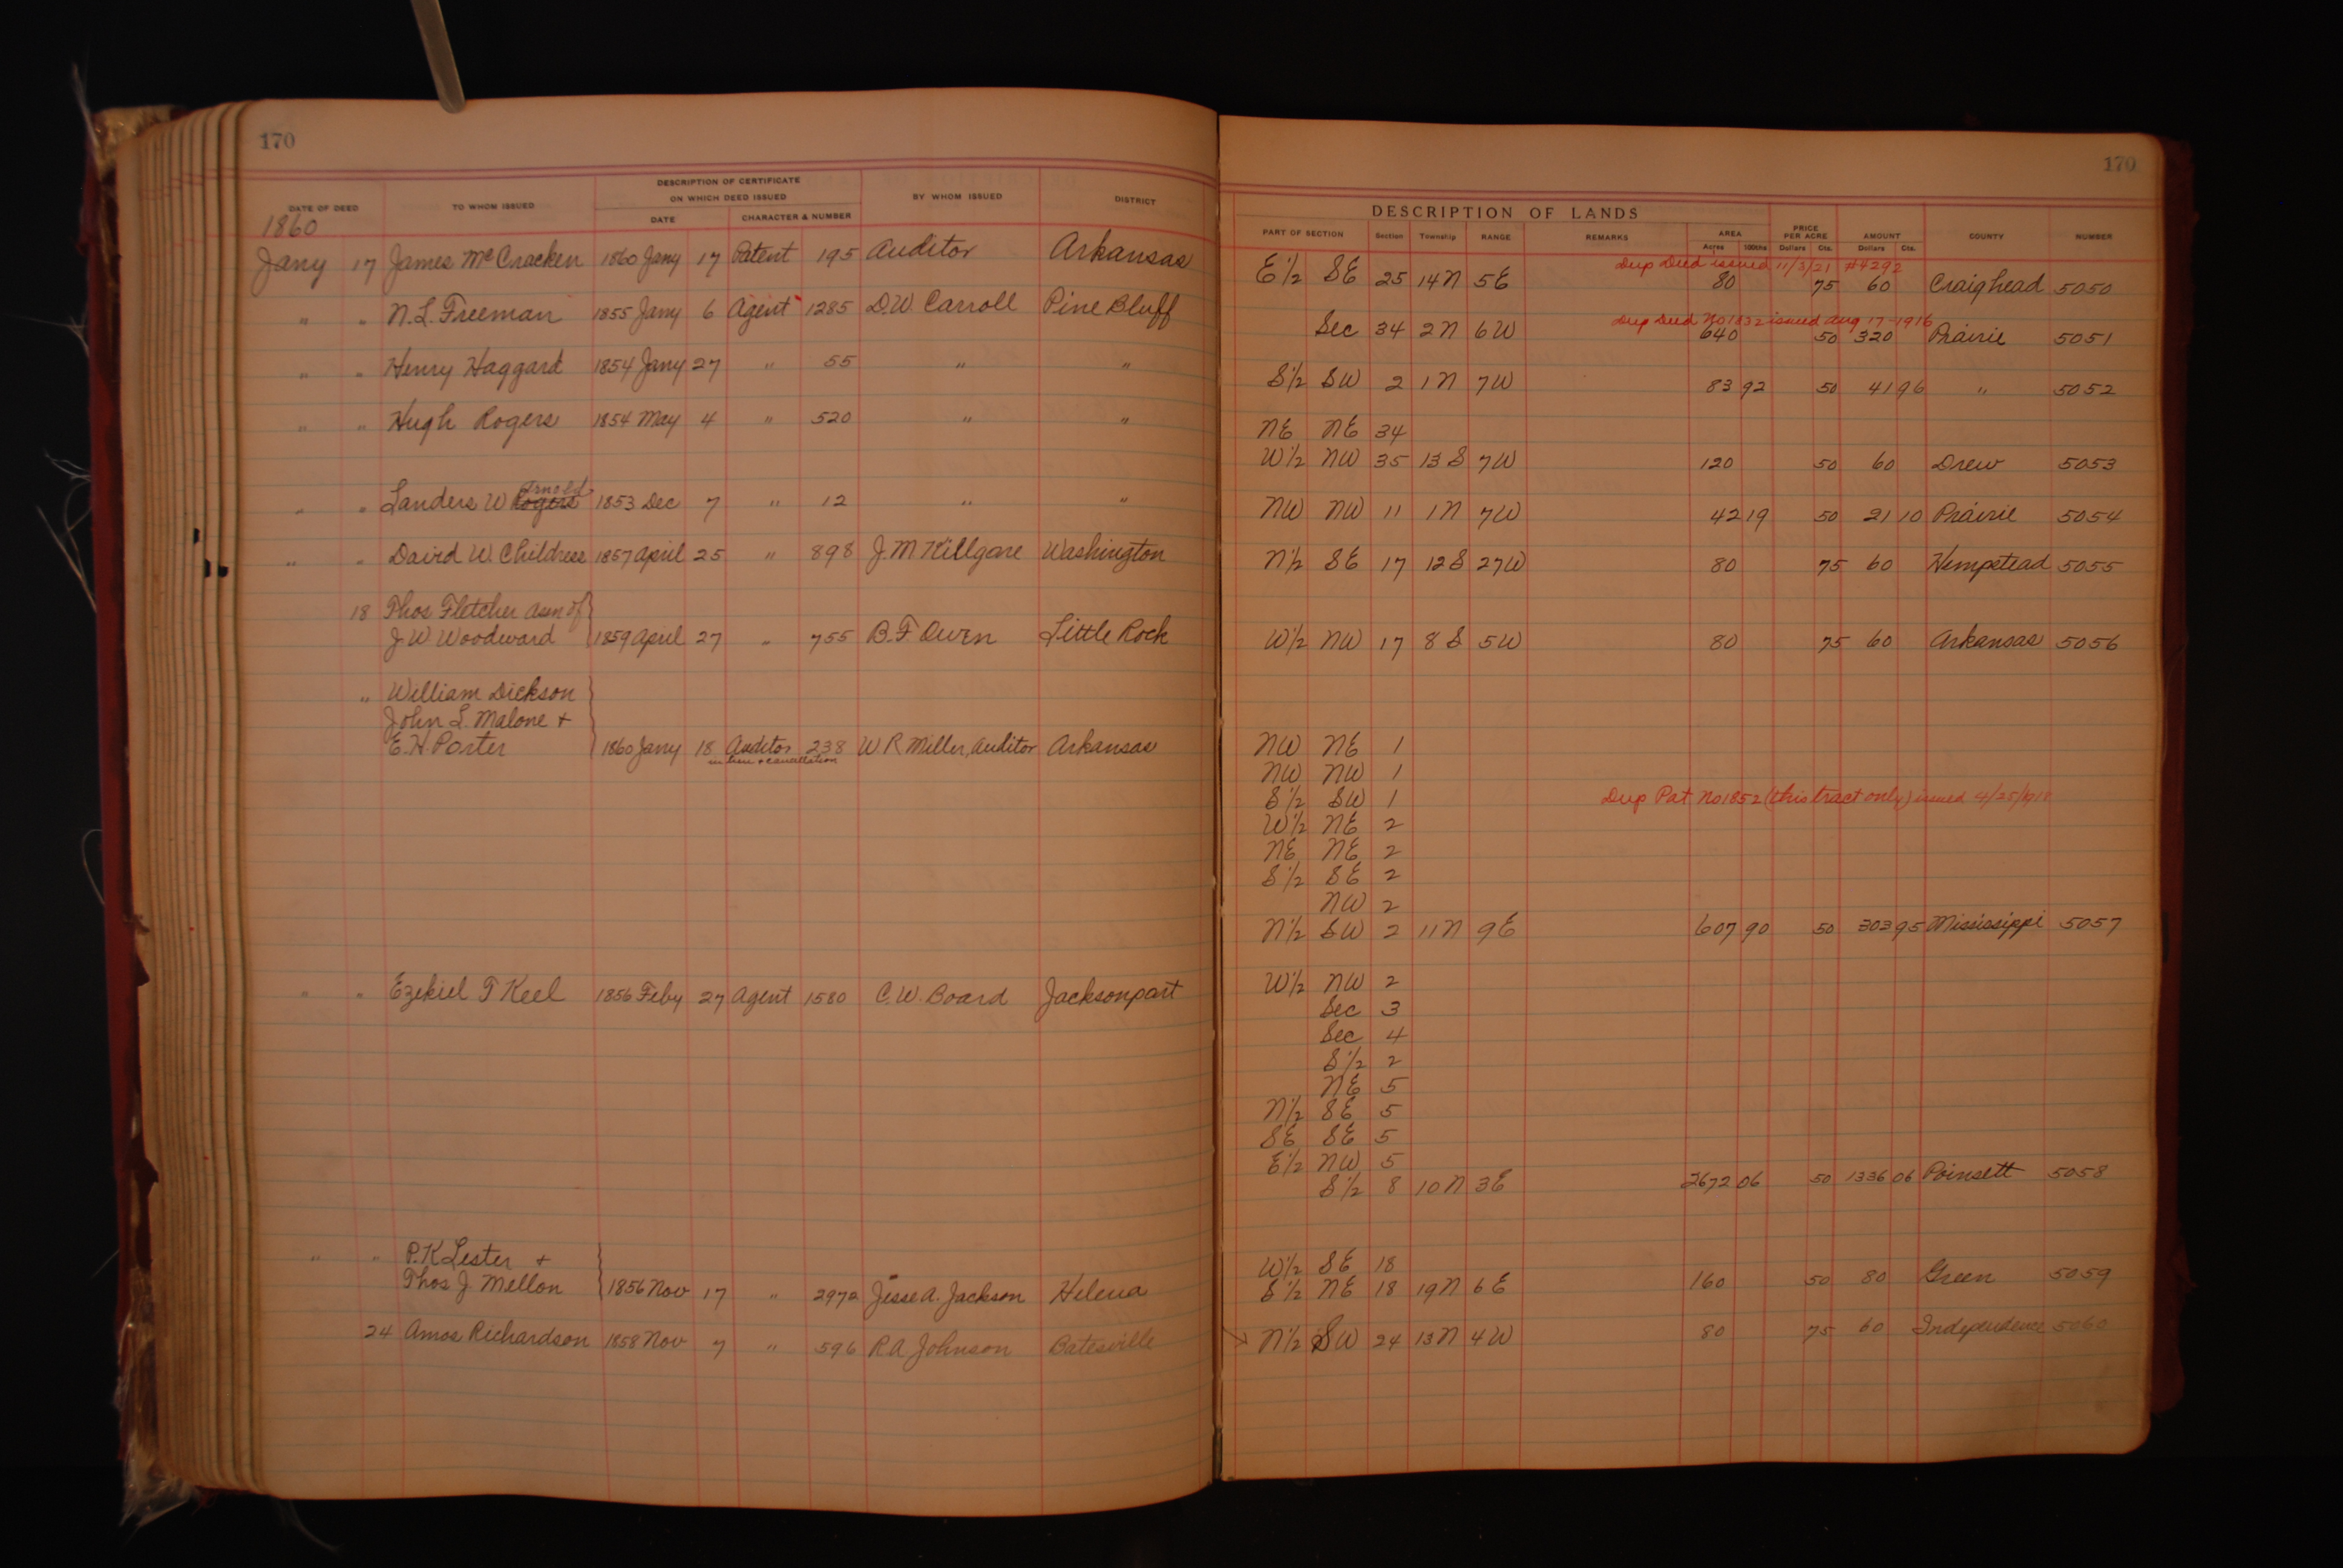 170
DATE OF DEED TO WHOM ISSUED DESCRIPTION OF CERTIFICATE ON WHICH DEED ISSUED BY WHOM ISSUED DISTRICT
DATE CHARACTER & NUMBER
1860
Jany 17 James McCracken 1860 Jany 17 Patent 195 Auditor Arkansas
" " N.L. Freeman 1855 Jany 6 Agent 1285 D.W Carroll Pine Bluff
" " Henry Haggard 1854 Jany 27 " 55 " "
" " Hugh Rogers 1854 May 4 " 520 " "
Arnold
" " Landers W Rogers 1853 Dec 7 " 12 " "
" " David W. Childress 1857 April 25 " 898 J.M Killgore Washington
18 Thos Fletcher assn of
J W Woodward 1859 April 27 " 755 B.F Owen Little Rock
" William Dickson
John L. Malone +
E.H Porter 1860 Jany 18 Auditor 238 W R Miller, Auditor Arkansas
in lieu + cancellation
" " Ezekiel T Keel 1856 Feby 27 Agent 1580 C.W. Board Jacksonport
" " P.K Lester +
Thos J Mellon 1856 Nov 17 " 2972 Jesse A. Jackson Helena
24 Amos Richardson 1858 Nov 7 " 596 R A Johnson Batesville
170
DESCRIPTION OF LANDS
PART OF SECTION Section Township RANGE REMARKS AREA PRICE PER ACRE AMOUNT COUNTY NUMBER
Acres 100ths Dollars Cts. Dollars Cts.
Dup Deed issued 11/3/21 #4292
E 1/2 SE 25 14N 5E 80 75 60 Craighead 5050
Dup Deed No 1832 issued Aug 17-1916
Sec 34 2N 6W 640 50 320 Prairie 5051
S 1/2 SW 2 1N 7W 83 92 50 41 96 " 5052
NE NE 34
W 1/2 NW 35 13 S 7W 120 50 60 Drew 5053
NW NW 11 1N 7W 42 19 50 21 10 Prairie 5054
N 1/2 SE 17 12S 27W 80 75 60 Hempstead 5055
W 1/2 NW 17 8 S 5W 80 75 60 Arkansas 5056
NW NE 1
NW NW 1
S 1/2 SW 1 Dup Pat No 1852 (this tract only) issued 4/25/1918
W 1/2 NE 2
NE NE 2
S 1/2 SE 2
NW 2
N 1/2 SW 2 11N 9E 607 90 50 303 95 Mississippi 5057
W 1/2 NW 2
Sec 3
Sec 4
S 1/2 2
NE 5
N 1/2 SE 5
SE SE 5
E 1/2 NW 5
S 1/2 8 10N 3E 2672 06 50 1336 06 Poinsett 5058
W 1/2 SE 18
S 1/2 NE 18 19N 6E 160 50 80 Green 5059
N 1/2 SW 24 13N 4W 80 75 60 Independence 5060